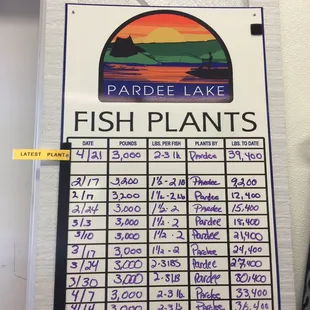 PARDEE LAKE
FISH PLANTS
DATE POUNDS LBS. PER FISH PLANTS BY LBS. TO DATE
LATEST PLANT 4/21 3,000 2-3 lb Pardee 39,400
2/17 3,200 1½-2 lb Pardee 9,200
2/17 3,200 1½-2 lb Pardee 12,400
2/24 3,000 1½-2 Pardee 15,400
3/3 3,000 1½-2 Pardee 18,400
3/10 3,000 1½-2 Pardee 21,400
3/17 3,000 1½-2 Pardee 24,400
3/24 3,000 2-3 lbs Pardee 27,400
3/30 3,000 2-3 lb Pardee 30,400
4/7 3,000 2-3 lb Pardee 33,400
4/14 3,000 2-3 lb Pardee 36,400